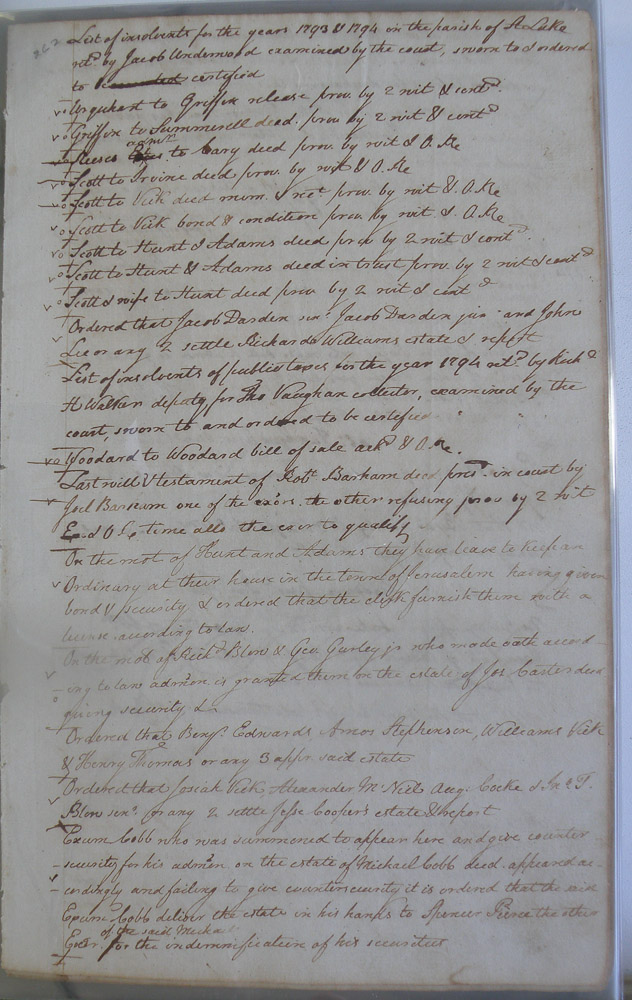 262
List of insolvents for the years 1793 & 1794 in the parish of St Luke
retd. by Jacob Underwood examined by the court, sworn to & ordered
to certified
Urquhart to Griffin release prov. by 2 wit & contd.
Griffin to Summerell deed. prov. by 2 wit & contd
admr.
Reese to Cary deed prov. by wit & O. Re
Scott to Irvine deed prov. by wit & O. Re
Scott to Vick deed mem. & rect prov. by wit & O. Re
Scott to Vick bond & condition prov. by wit &. O. Re
Scott to Hunt & Adams deed prov by 2 wit & contd.
Scott to Hunt & Adams deed in trust prov. by 2 wit & contd
Scott & wife to Hunt deed prov. by 2 wit & contd
Ordered that Jacob Darden senr. Jacob Darden junr. and John
Lee or any 2 settle Richards Williams estate & report
List of insolvents of public taxes for the year 1794 retd. by Richd
H Walker deputy for Tho Vaughan collector, examined by the
court, sworn to and ordered to be certified
Woodard to Woodard bill of sale ackd & O. Re.
Last will & testament of Robt. Barham decd presd. in court by
Joel Barham one of the exors. the other refusing prov by 2 wit
& O time allo the exor to qualify
On the mot of Hunt and Adams they have leave to keep an
Ordinary at their house in the town of Jerusalem having given
bond & security & ordered that the clerk furnish them with a
license according to law.
On the mot. of Richd Blow & Geo Gurley jr who made oath accord
ing to law admon is granted them on the estate of Jos Carter decd
giving security &a
Ordered that Benja. Edwards Amos Stephenson, Williams Vick
& Henry Thomas or any 3 appr. said estate
Ordered that Josiah Vick, Alexander McNeil Aug. Cocke & Jno. T.
Blow senr. or any 2 settle Jesse Cooper's estate & report
Exum Cobb who was summoned to appear here and give counter
security for his admon on the estate of Michael Cobb decd. appeared ac-
cordingly and failing to give countersecurity it is ordered that the said
Exum Cobb deliver the estate in his hands to Spencer Pierce the other
of the said Micha
Exor. for the indemnification of his securities